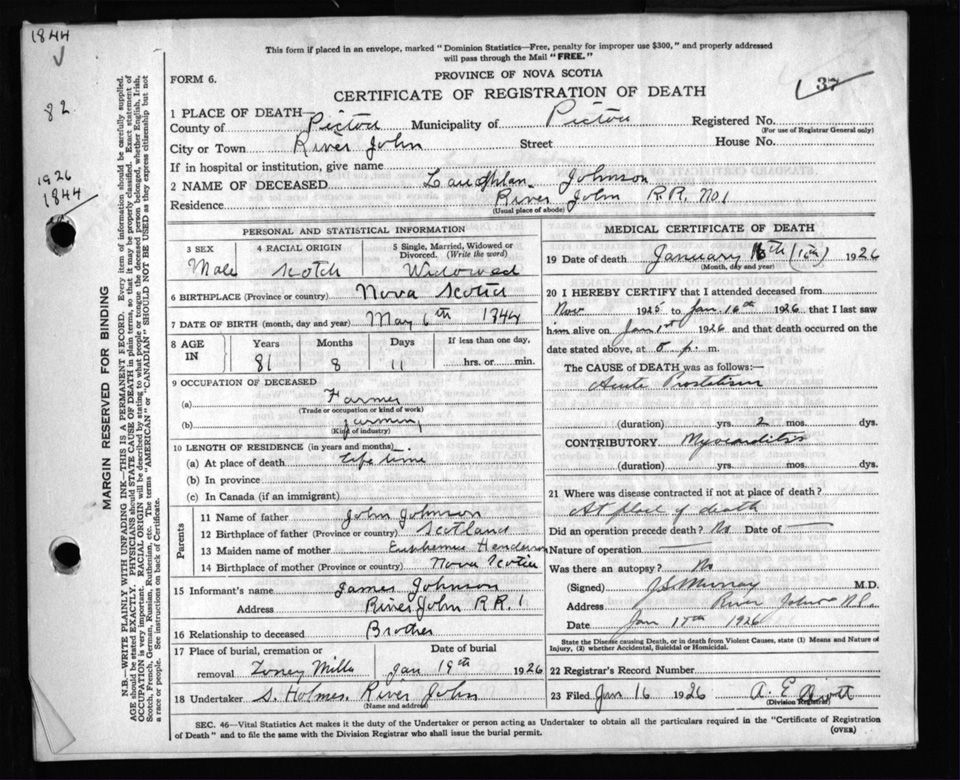 1844
82
1926
1844
This form if placed in an envelope, marked "Dominion Statistics—Free, penalty for improper use $300," and properly addressed
will pass through the Mail "FREE."
FORM 6.
PROVINCE OF NOVA SCOTIA
CERTIFICATE OF REGISTRATION OF DEATH
37
1 PLACE OF DEATH—
County of Pictou Municipality of Pictou Registered No.
(For use of Registrar General only)
City or Town River John Street House No.
If in hospital or institution, give name
2 NAME OF DECEASED Lauchlan Johnson
Residence River John R.R. No 1
(Usual place of abode)
PERSONAL AND STATISTICAL INFORMATION
3 SEX Male
4 RACIAL ORIGIN Scotch
5 Single, Married, Widowed or Divorced. (Write the word) Widowed
6 BIRTHPLACE (Province or country) Nova Scotia
7 DATE OF BIRTH (month, day and year) May 6th 1844
8 AGE IN Years 81 Months 8 Days 11 If less than one day, hrs. or min.
9 OCCUPATION OF DECEASED
(a) Farmer
(Trade or occupation or kind of work)
(b) farming
(Kind of industry)
10 LENGTH OF RESIDENCE (in years and months)
(a) At place of death life time
(b) In province
(c) In Canada (if an immigrant)
Parents
11 Name of father John Johnson
12 Birthplace of father (Province or country) Scotland
13 Maiden name of mother Henderson
14 Birthplace of mother (Province or country) Nova Scotia
15 Informant's name James Johnson
Address River John R R. 1
16 Relationship to deceased Brother
17 Place of burial, cremation or removal Mills
Date of burial Jan 19th 1926
18 Undertaker S. Holmes. River John
(Name and address)
MEDICAL CERTIFICATE OF DEATH
19 Date of death January 16th (16th) 1926
(Month, day and year)
20 I HEREBY CERTIFY that I attended deceased from
Nov 1925 to Jan. 16th 1926 that I last saw
him alive on Jan 1926 and that death occurred on
date stated above, at 8 p. m.
The CAUSE of DEATH was as follows:—
Acute
(duration) yrs. 2 mos. dys.
CONTRIBUTORY Myocarditis
(duration) yrs. mos. dys.
21 Where was disease contracted if not at place of death?
At place of death
Did an operation precede death? No Date of —
Nature of operation —
Was there an autopsy? No
(Signed) J S Murray M.D.
Address River John N.S.
Date Jan 1926
State the Disease causing Death, or in death from Violent Causes, state (1) Means and Nature of
Injury, (2) whether Accidental, Suicidal or Homicidal.
22 Registrar's Record Number
23 Filed Jan 16 1926 A. E
(Division Registrar)
SEC. 46—Vital Statistics Act makes it the duty of the Undertaker or person acting as Undertaker to obtain all the particulars required in the "Certificate of Registration
of Death" and to file the same with the Division Registrar who shall issue the burial permit.
(OVER)
MARGIN RESERVED FOR BINDING
N.B.—WRITE PLAINLY WITH UNFADING INK—THIS IS A PERMANENT RECORD. Every item of information should be carefully supplied.
AGE should be stated EXACTLY. PHYSICIANS should STATE CAUSE OF DEATH in plain terms, so that it may be properly classified. Exact statement of
OCCUPATION is very important. RACIAL ORIGIN will be described by stating to what people or tongue the deceased person belonged, whether English, Irish,
Scotch, French, German, Russian, Ruthenian, etc. The terms "AMERICAN" or "CANADIAN" SHOULD NOT BE USED as they express citizenship but not
a race or people. See instructions on back of Certificate.